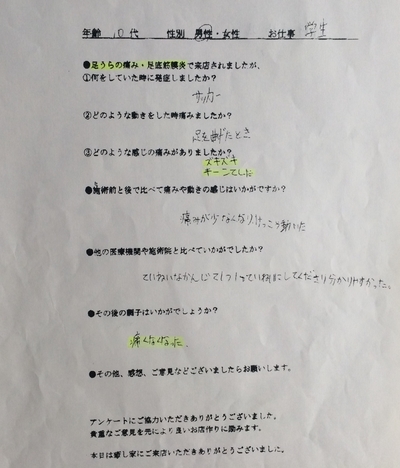 年齢 10代 性別 男性・女性 お仕事 学生
●足うらの痛み・足底筋膜炎で来店されましたが、
①何をしていた時に発症しましたか？
サッカー
②どのような動きをした時痛みましたか？
足を曲げたとき
③どのような感じの痛みがありましたか？
ズキズキ
キーンてした
●施術前と後で比べて痛みや動きの感じはいかがですか？
痛みが少なくなりけっこう動いた
●他の医療機関や施術院と比べていかがでしたか？
ていねいなかんじで1つ1つていねいにしてくださり分かりやすかった。
●その後の調子はいかがでしょうか？
痛くなくなった
●その他、感想、ご意見などございましたらお願いします。
アンケートにご協力いただきありがとうございました。
貴重なご意見を元により良いお店作りに励みます。
本日は癒し家にご来店いただきありがとうございました。